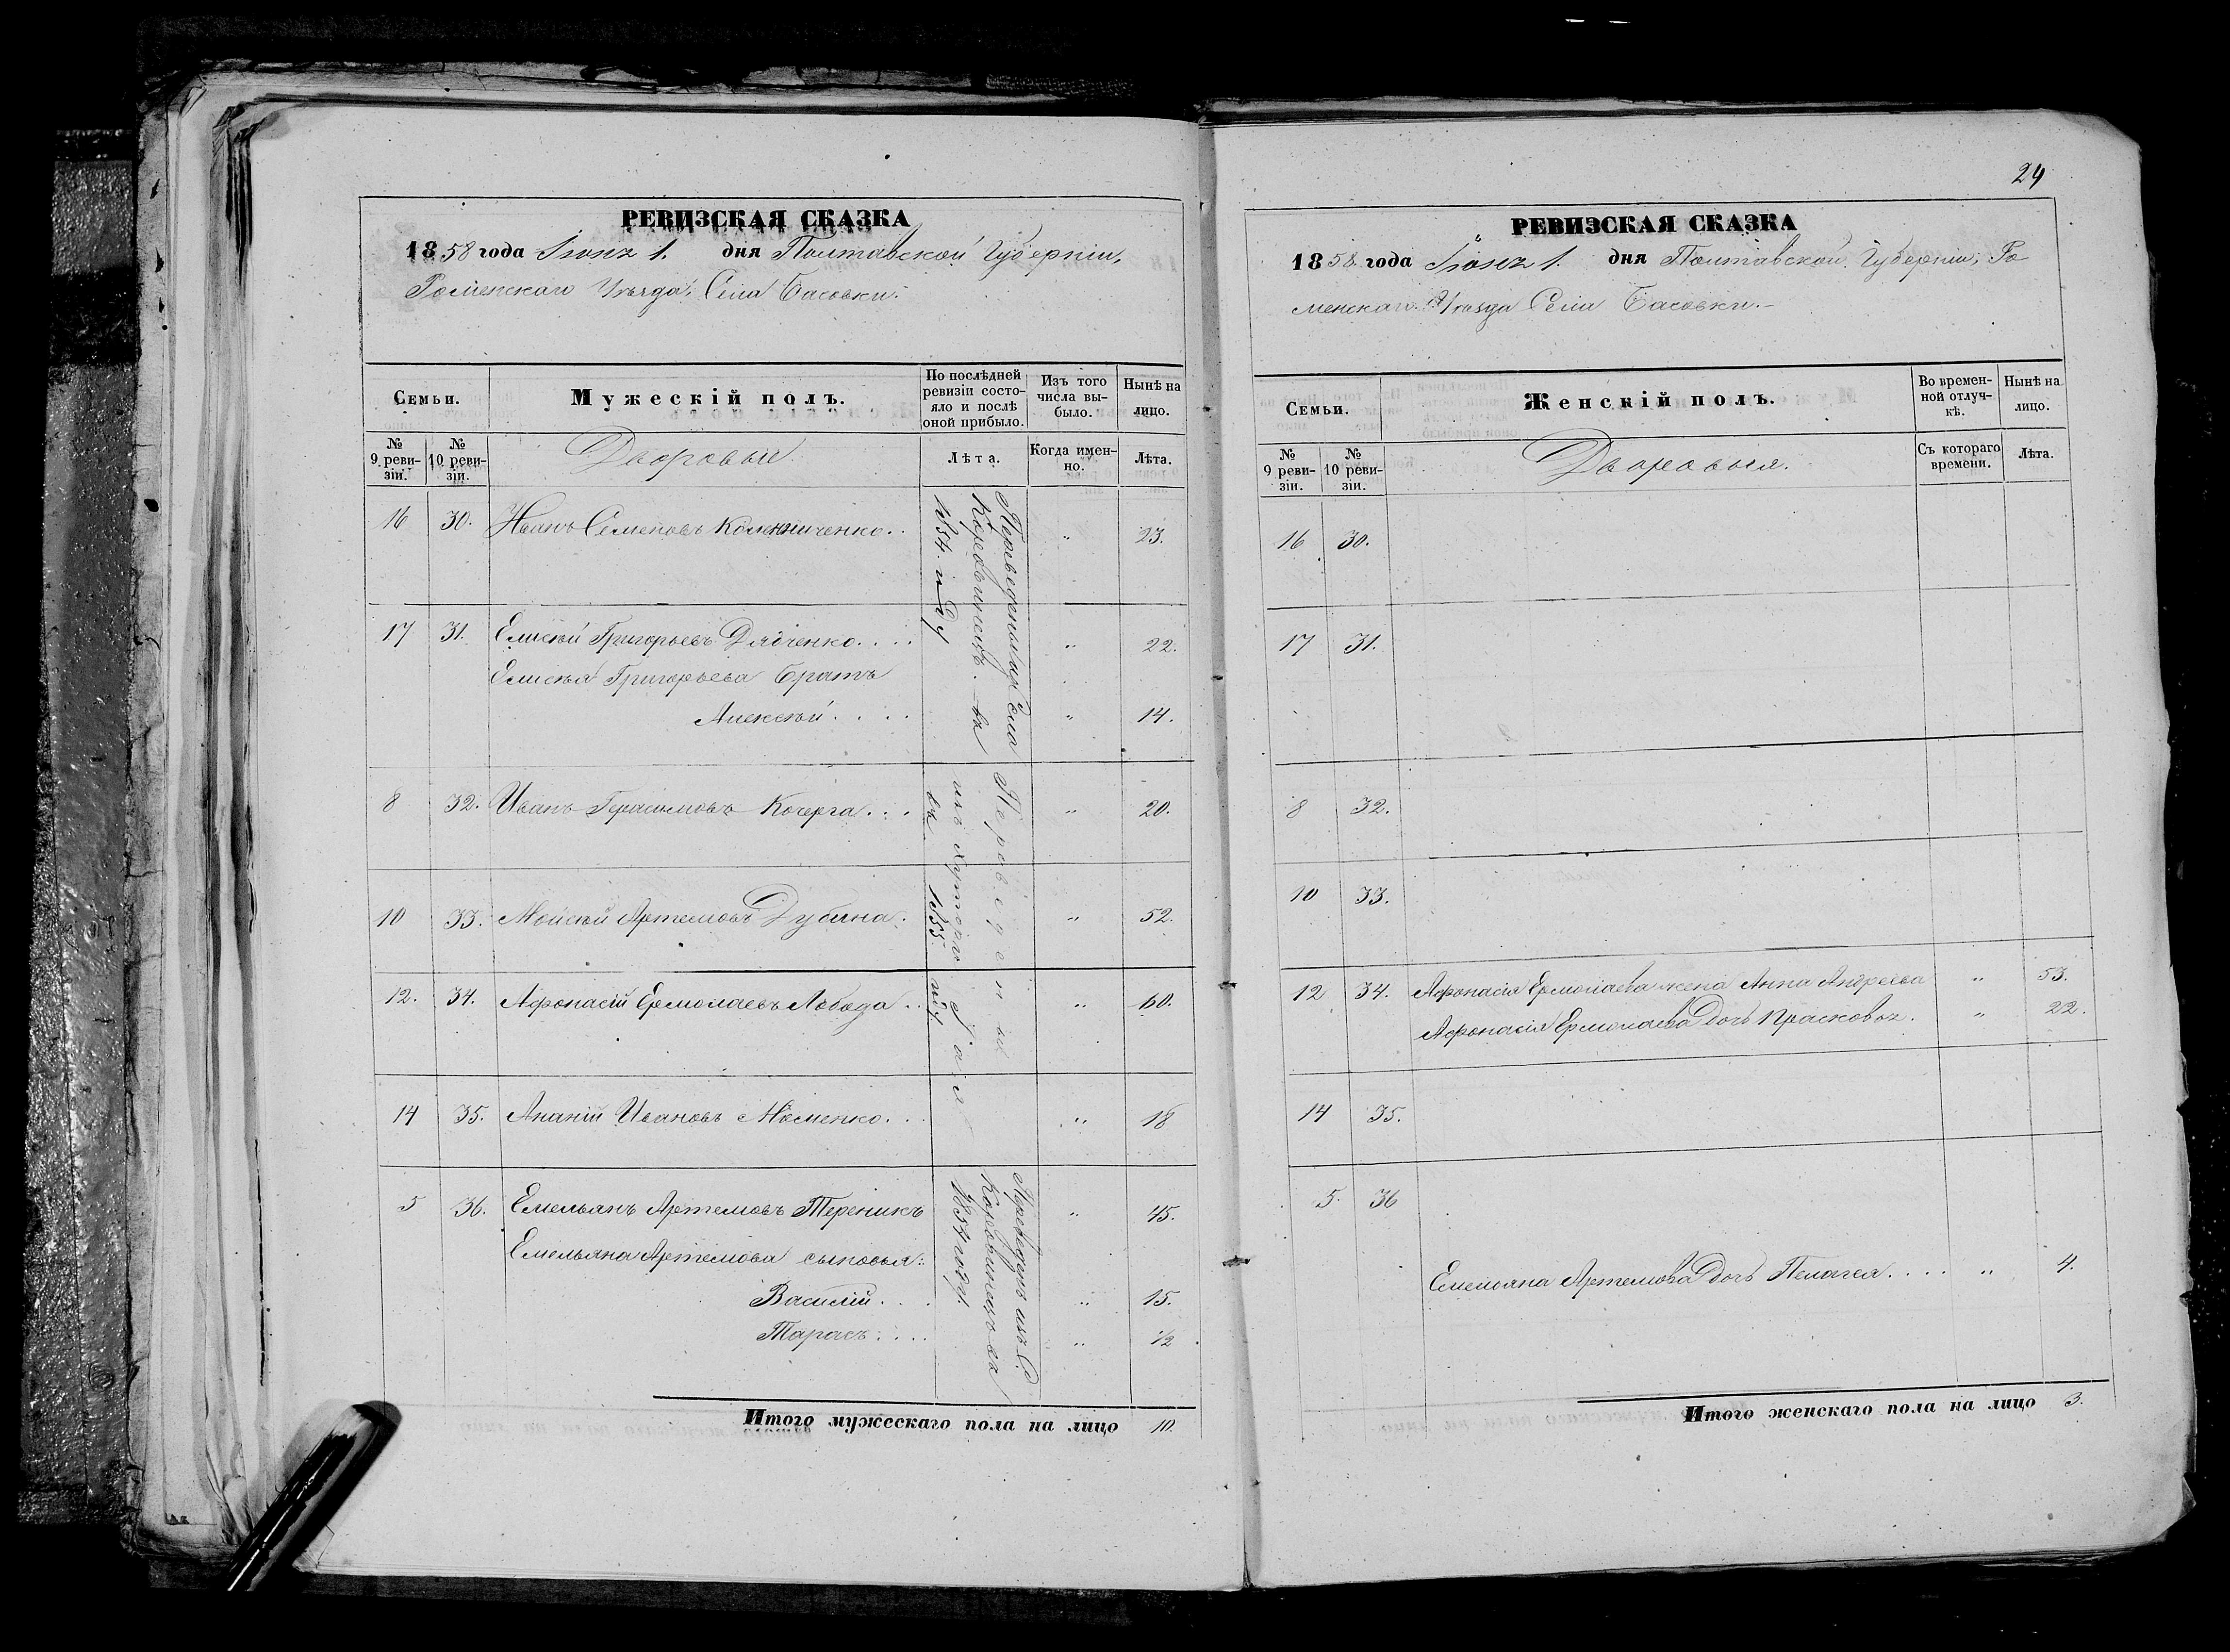 РЕВИЗСКАЯ СКАЗКА
1858 года Іюня 1. дня Полтавской Губерніи,
Роменскаго Уѣзда, Села Басовки.
Семьи.
Мужескій полъ.
По послѣдней ревизіи состояло и послѣ оной прибыло.
Изъ того числа выбыло.
Нынѣ на лицо.
№ 9 ревизіи.
№ 10 ревизіи.
Дворовые
Лѣта.
Когда именно.
Лѣта.
16 30. Иванъ Семеновъ .. „ 23.
17 31. Елисѣй Григорьевъ Дядченко.... „ 22.
Елисѣя Григорьева братъ
Алексѣй.... „ 14.
Переведены изъ Села
Коровинецъ. въ
1854. году
8 32. Иванъ Герасимовъ Кочерга... „ 20.
10 33. Мойсѣй Артемовъ Дубина. „ 52.
12. 34. Афонасій Ермолаевъ Лобода.. „ 60.
14 35. Ананій Ивановъ ... „ 18
Переведены
изъ хутора
въ 1855 году
5 36. Емельянъ Артемовъ Тереникъ „ 45.
Емельяна Артемова сыновья:
Василій... „ 15.
Тарасъ.... „ 1/2
Переведенъ изъ С.
Коровинецъ въ
1857 году.
Итого мужескаго пола на лицо 10.
24
РЕВИЗСКАЯ СКАЗКА
1858 года Іюня 1. дня Полтавской Губерніи, Ро
менскаго Уѣзда Села Басовки.
Семьи.
Женскій полъ.
Во временной отлучкѣ.
Нынѣ на лицо.
№ 9 ревизіи.
№ 10 ревизіи.
Дворовыя.
Съ котораго времени.
Лѣта.
16 30.
17 31.
8 32.
10 33.
12 34. Афонасія Ермолаева жена Анна Андреева „ 53.
Афонасія Ермолаева Дочь Прасковья. „ 22.
14 35.
5. 36
Емельяна Артемова Дочь Пелагея.... „ 4.
Итого женскаго пола на лицо 3.